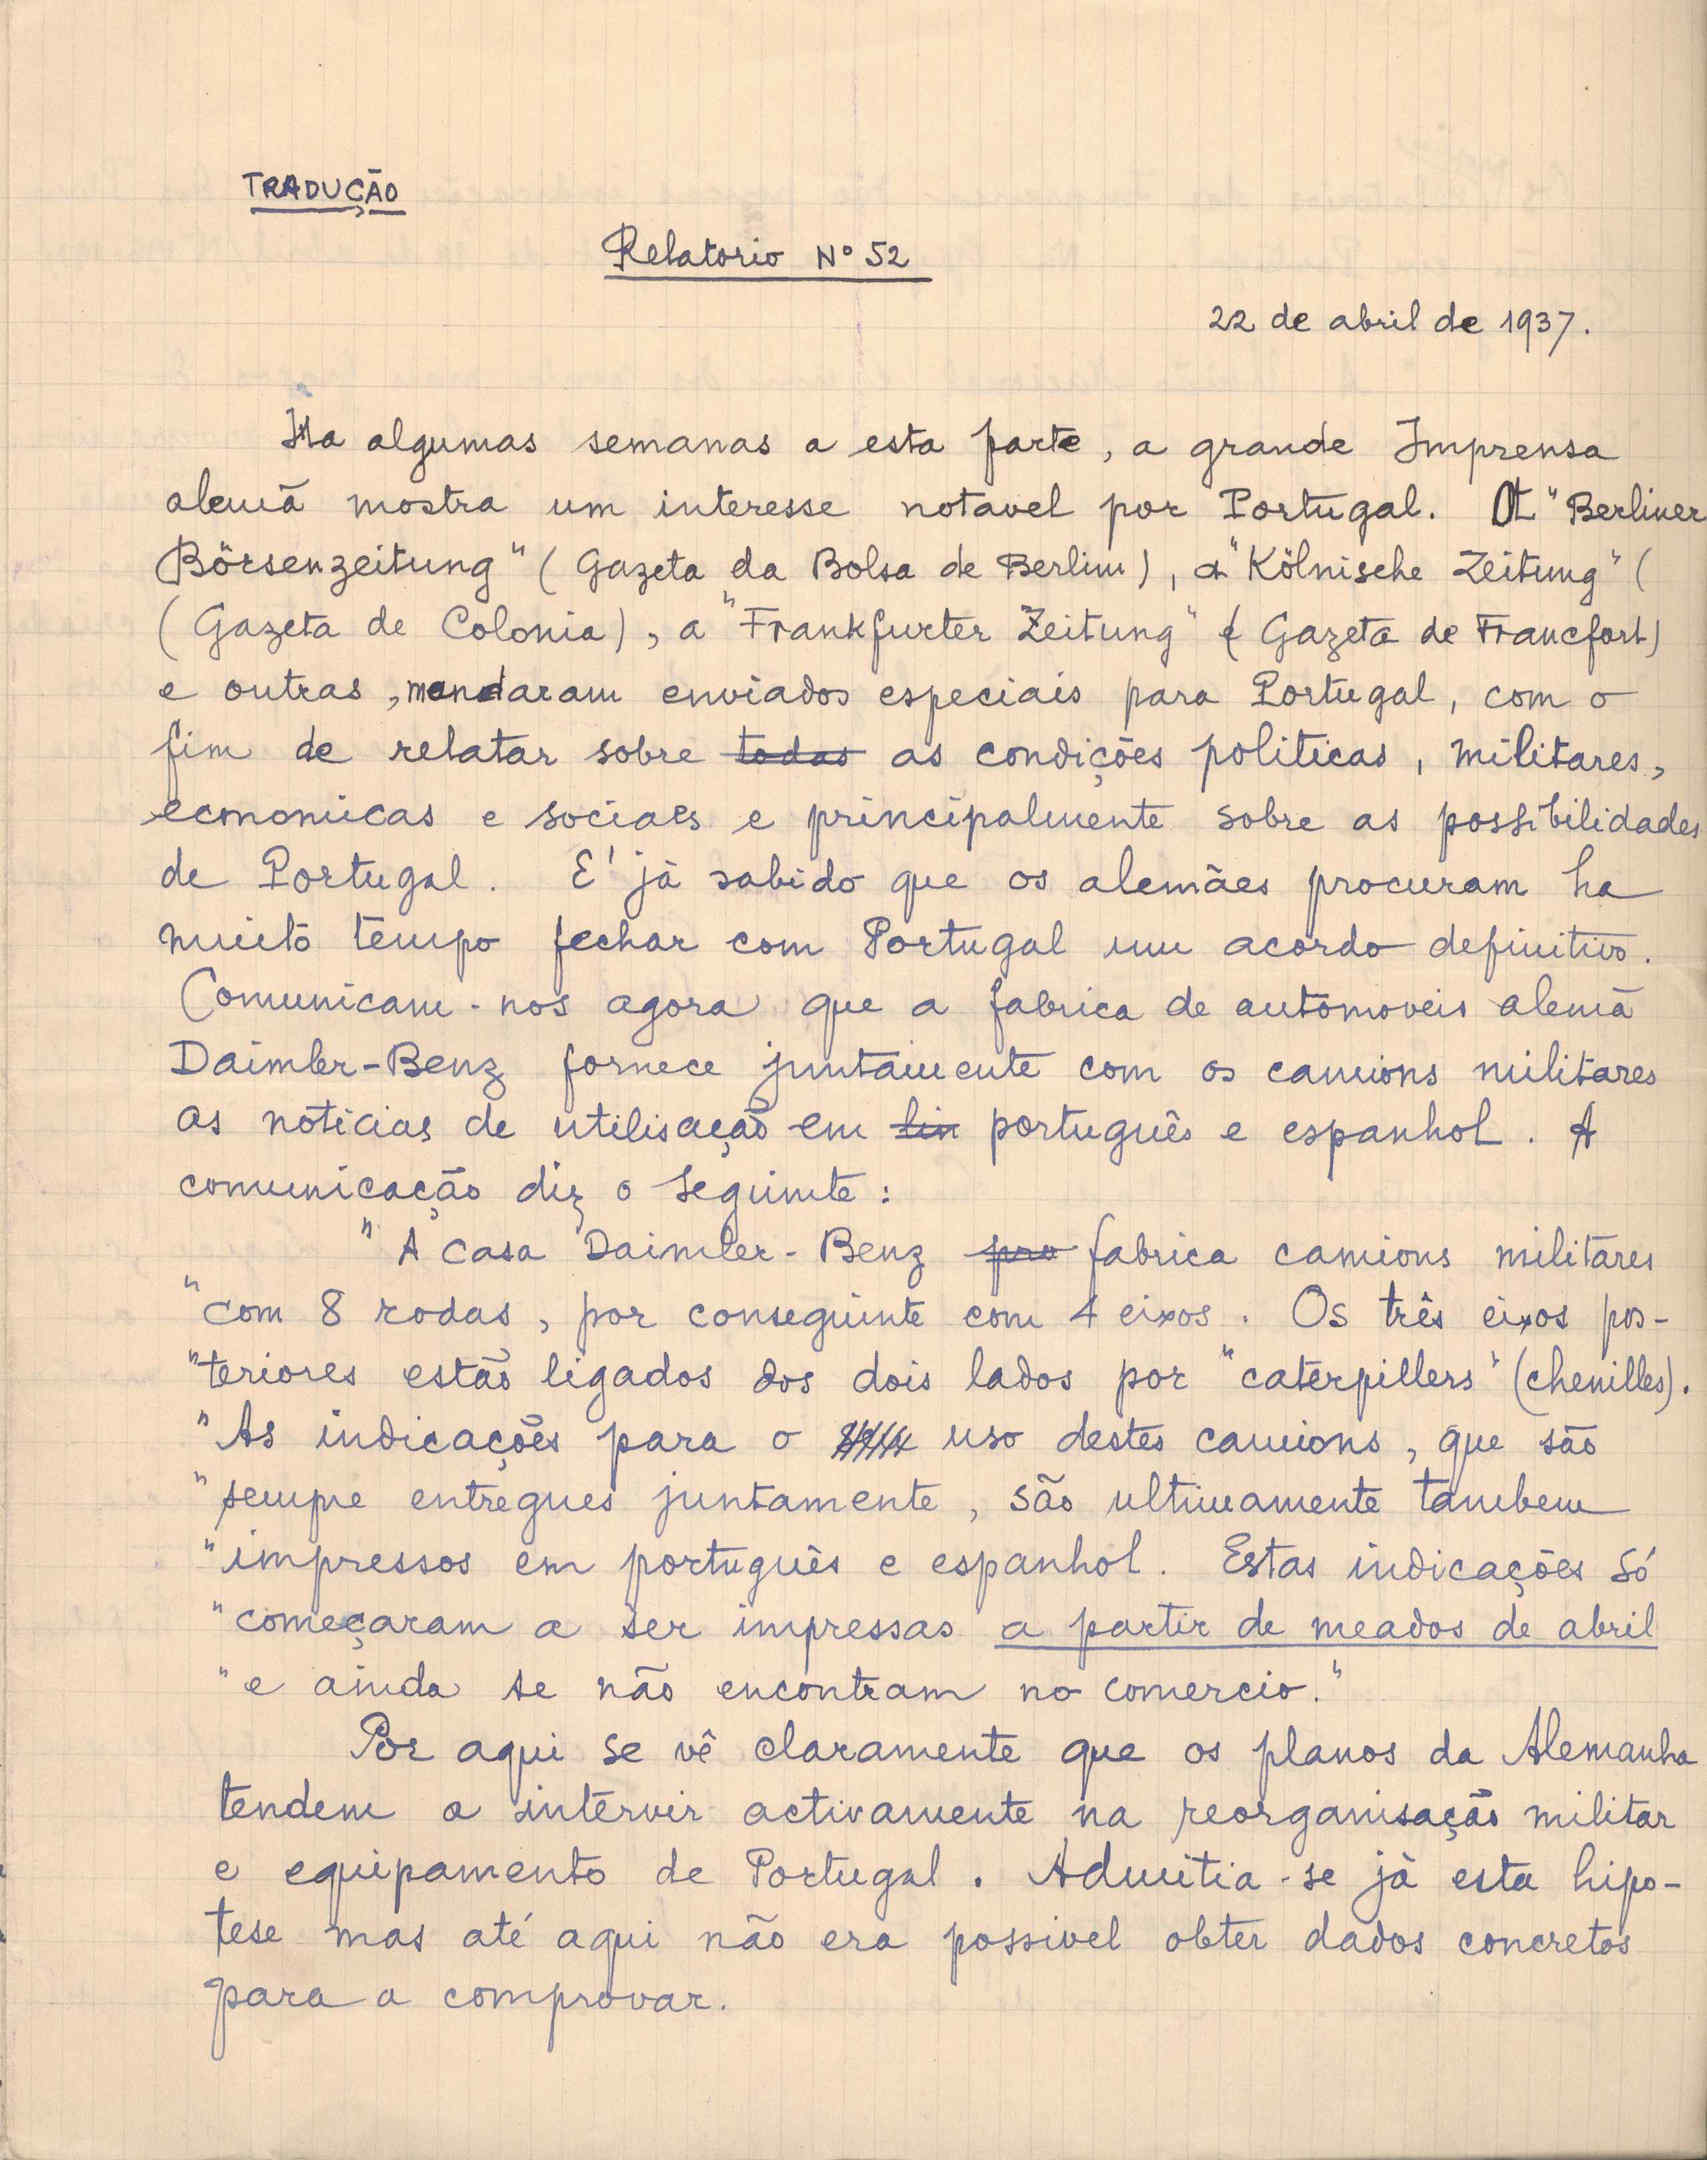 TRADUÇÃO
Relatorio Nº 52
22 de abril de 1937.
Ha algumas semanas a esta parte, a grande Imprensa
alemã mostra um interesse notavel por Portugal. A "Berliner
Börsenzeitung" (Gazeta da Bolsa de Berlim), a "Kölnische Zeitung" (
(Gazeta de Colonia), a "Frankfurter Zeitung" (Gazeta de Francfort)
e outras, mandaram enviados especiais para Portugal, com o
fim de relatar sobre todas as condições politicas, militares,
economicas e sociaes e principalmente sobre as possibilidades
de Portugal. E' já sabido que os alemães procuram ha
muito tempo fechar com Portugal um acordo definitivo.
Comunicam-nos agora que a fabrica de automoveis alemã
Daimler-Benz fornece juntamente com os camions militares
as noticias de utilisação em lin português e espanhol. A
comunicação diz o seguinte:
"A casa Daimler-Benz pro fabrica camions militares
"com 8 rodas, por conseguinte com 4 eixos. Os três eixos pos-
"teriores estão ligados dos dois lados por "caterpillers" (chenilles).
"As indicações para o uso destes camions, que são
"sempre entregues juntamente, são ultimamente tambem
"impressos em português e espanhol. Estas indicações só
"começaram a ser impressas a partir de meados de abril
"e ainda se não encontram no comercio."
Por aqui se vê claramente que os planos da Alemanha
tendem a intervir activamente na reorganisação militar
e equipamento de Portugal. Admitia-se já esta hipo-
tese mas até aqui não era possivel obter dados concretos
para a comprovar.